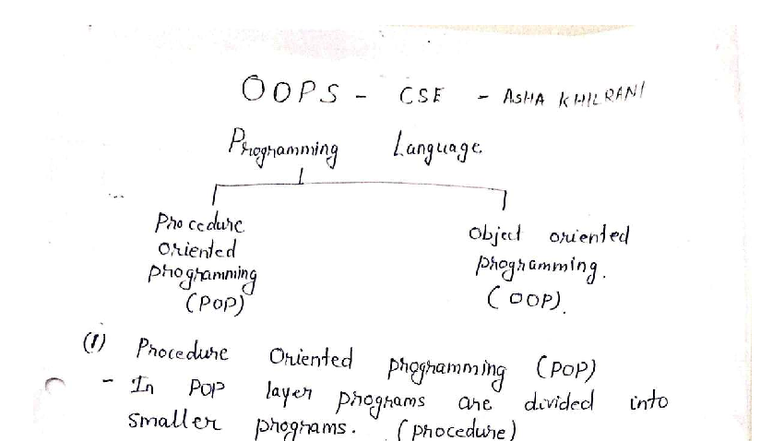 OOPS - CSE - ASHA KHILRANI
Programming Language
Procedure
oriented
programming
(POP)
Object oriented
programming.
(OOP).
(1) Procedure Oriented programming (POP)
- In POP layer programs are divided into
smaller programs. (procedure)